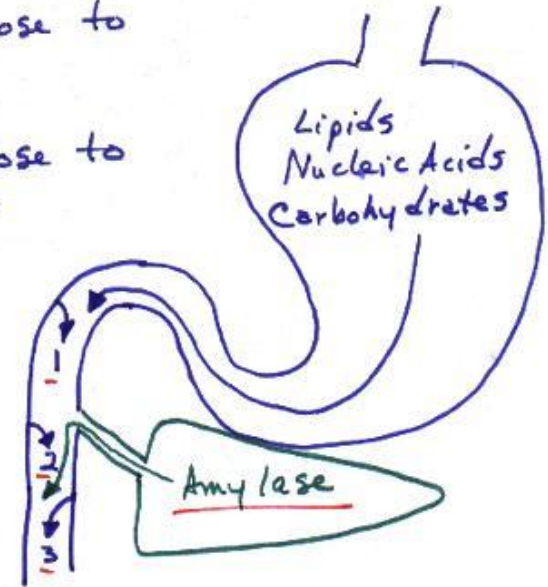 ose to
ose to
Lipids
Nucleic Acids
Carbohydrates
1
2
Amylase
3